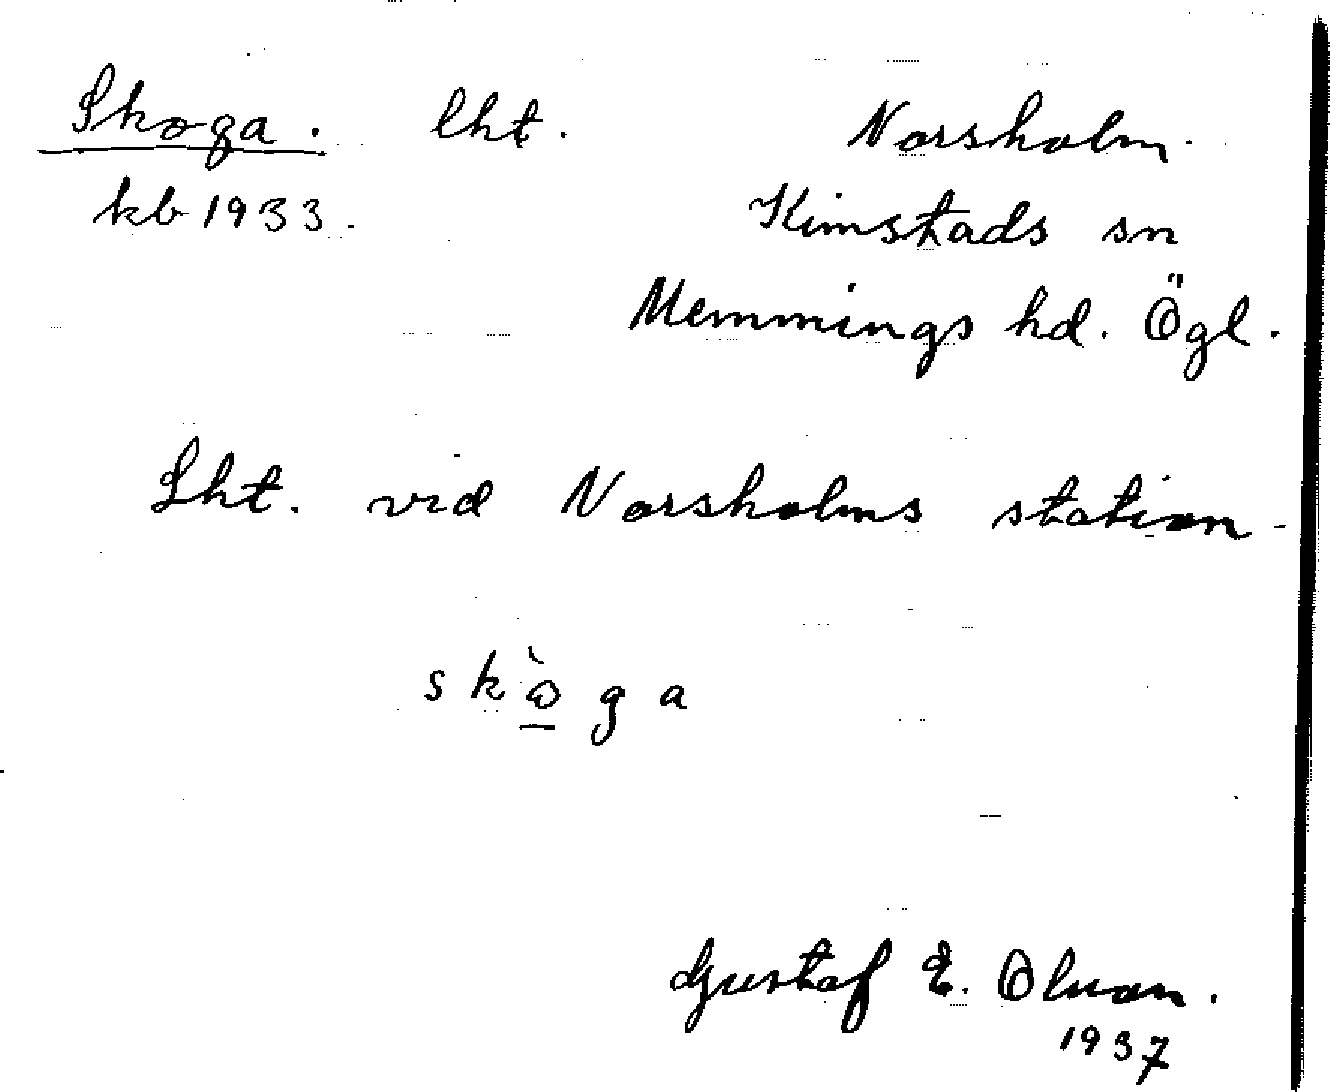 Skoga. lht. Norsholm.
kb 1933. Kimstads sn
Memmings hd. Ögl.
Lht. vid Norsholms station
skò̲ga
Gustaf E. Olson.
1937